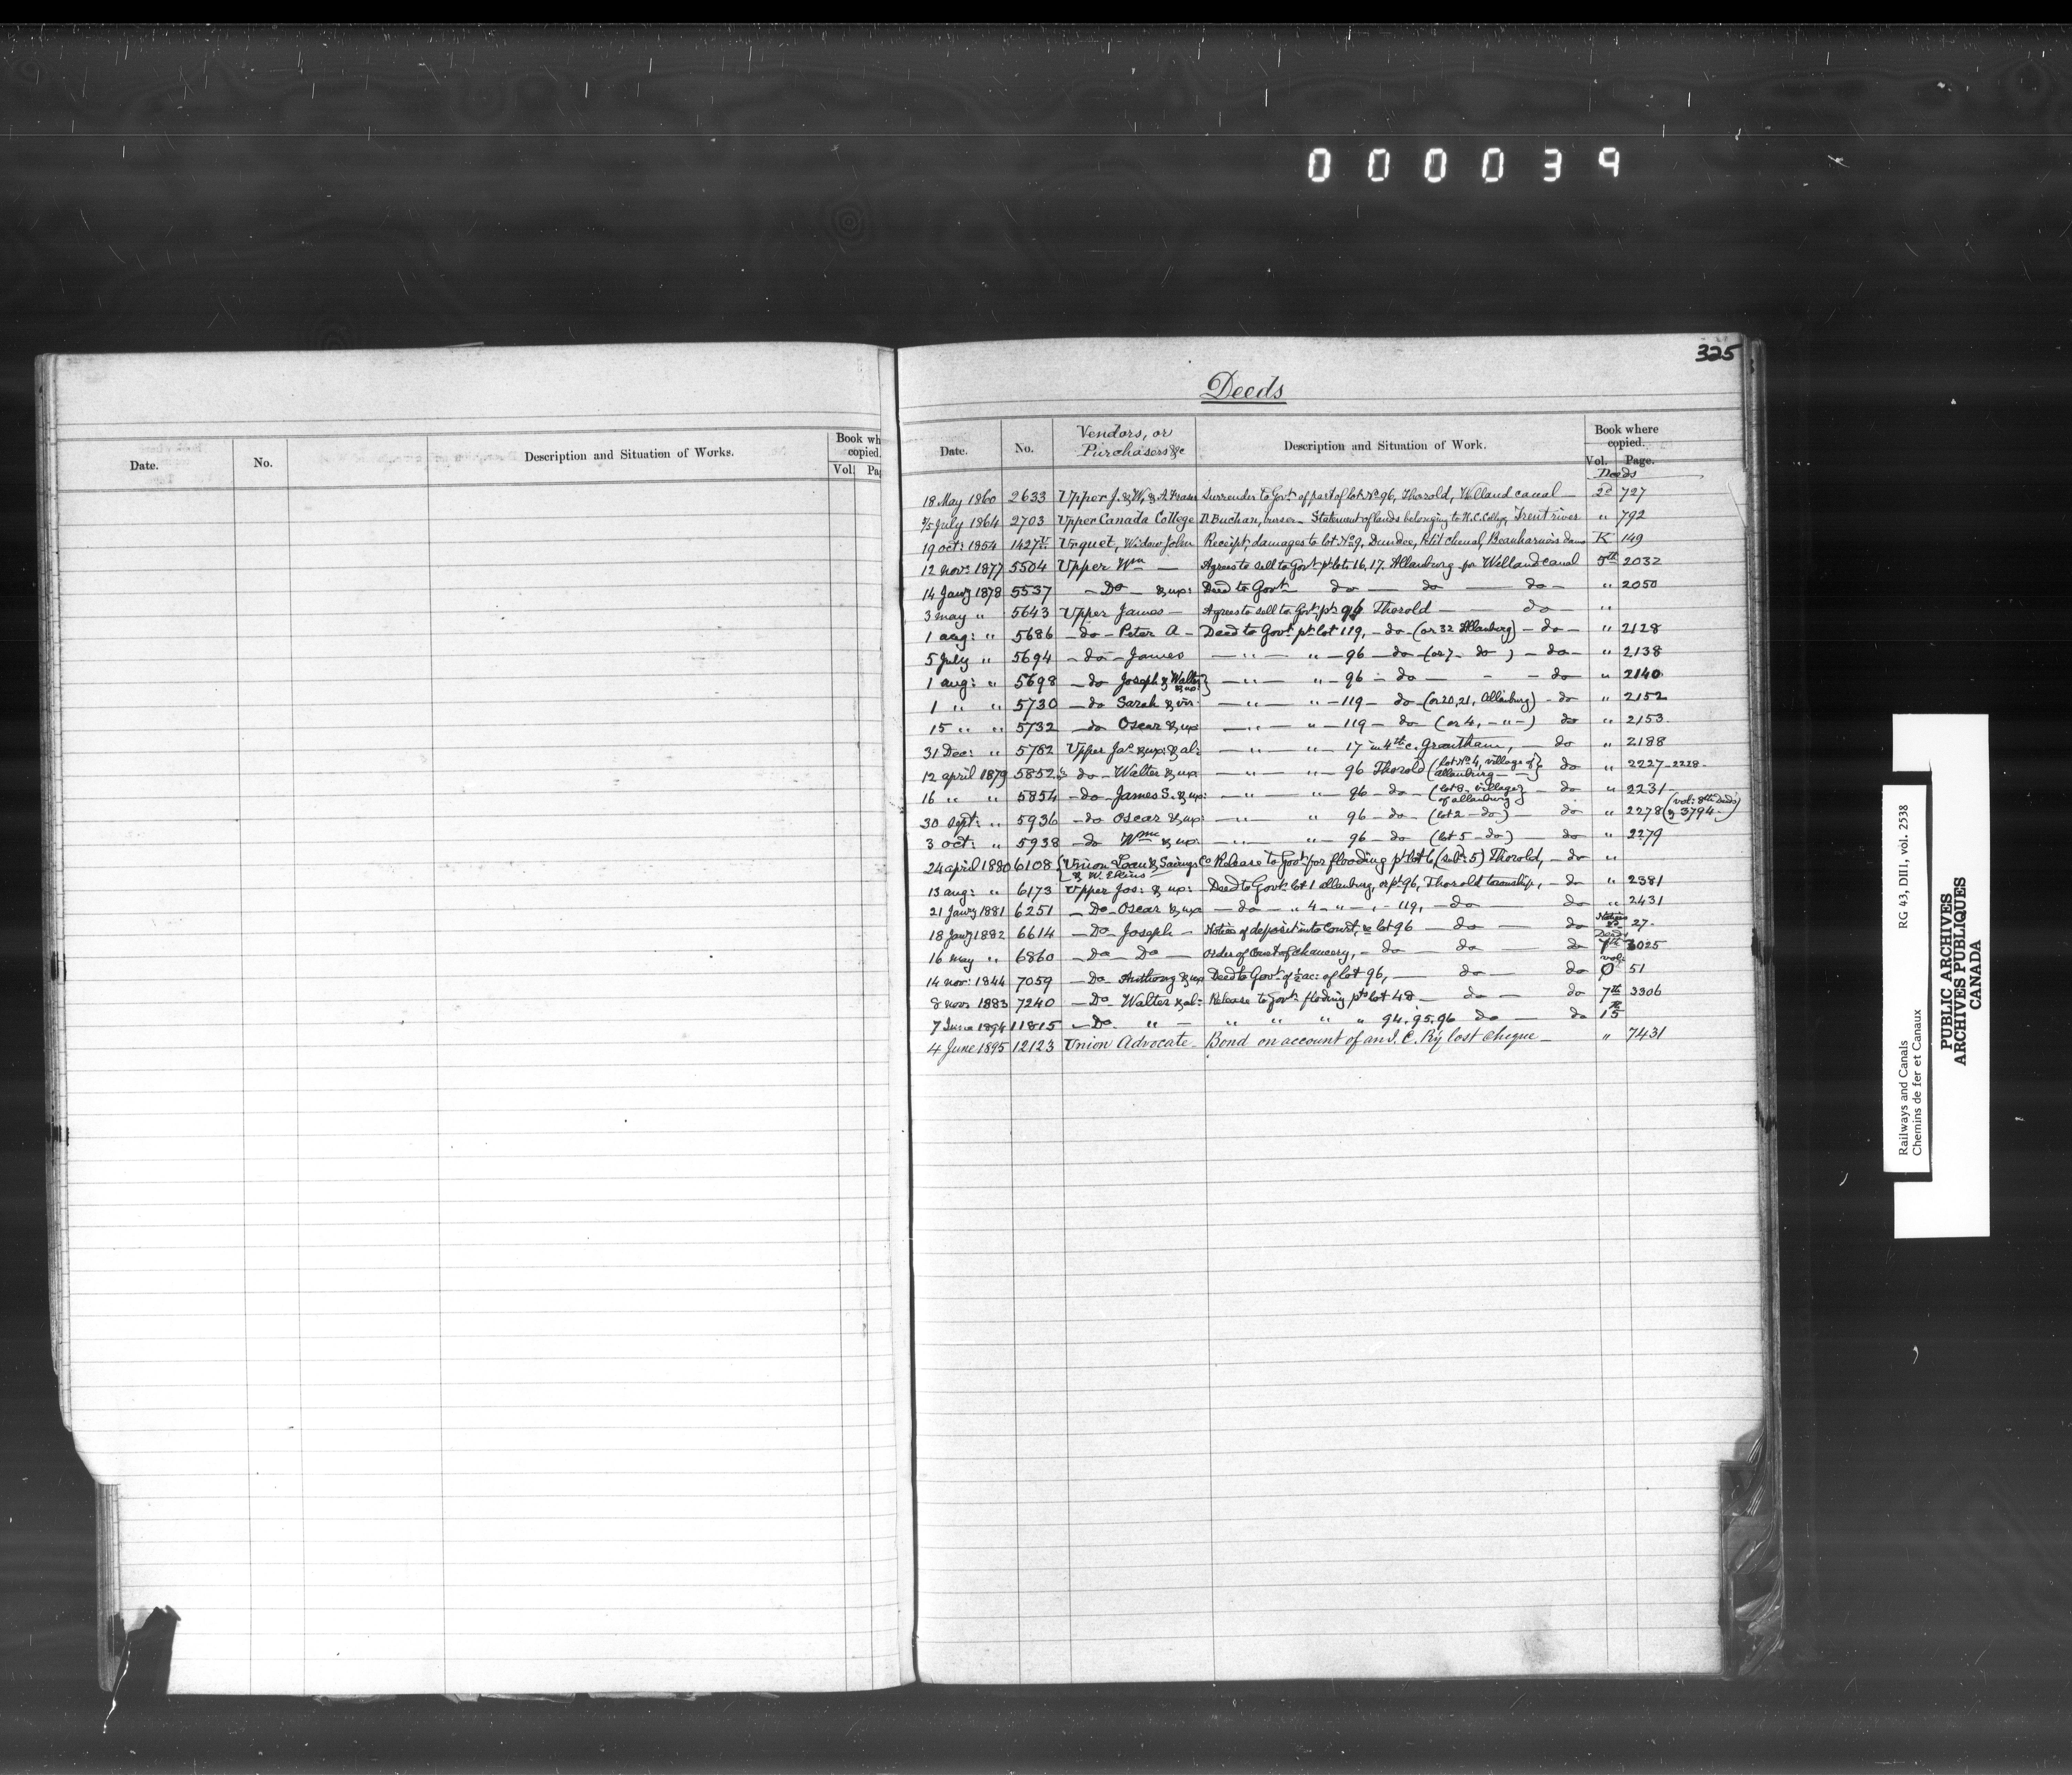 000039
325
Deeds
Date. No. Description and Situation of Works. Book wh copied. Vol. Pag
Date. No. Vendors, or Purchasers &c Description and Situation of Work. Book where copied. Vol. Page.
Deeds
18 May 1860 2633 Upper J. & W. & A. Fraser Surrender to Govt. of part of lot No. 96, Thorold, Welland canal — 2d 727
5 July 1864 2703 Upper Canada College D. Buchan, bursar — Statement of lands belonging to U.C. College, Trent river " 792
19 oct: 1854 1427 Urquet, Widow John Receipt, damages to lot No. 9, Dundee, Petit chenal, Beauharnois dams K 149
12 novr: 1877 5504 Upper Wm — Agrees to sell to Govt. pt. lots 16, 17. Allanburg for Welland canal 5th 2032
14 Jany 1878 5537 — Do — & ux: Deed to Govt. do — do — do — " 2050
3 may " 5643 Upper James — Agrees to sell to Govt. pt. 96 Thorold — do — "
1 aug: " 5686 — do — Peter A — Deed to Govt. pt. lot 119, — do — (or 32 Allanburg) — do — " 2128
5 July " 5694 — do — James — " — " — 96 — do — (or 7 — do — ) — do — " 2138
1 aug: " 5698 — do Joseph & Walter & ux: } — " — " — 96 — do — - - do — " 2140
1 " " 5730 — do Sarah & vir: — " — " — 119 — do — (or 20, 21, Allanburg) — do " 2152
15 " " 5732 — do Oscar & ux: — " — " — 119 — do (or 4, — " —) do " 2153.
31 Dec: " 5782 Upper Jas. & ux: & al: — " — " — 17 in 4th c. Grantham, — do " 2188
12 april 1879 5852 do — Walter & ux — " — " — 96 Thorold (lot No. 4, village of allanburg — —) do " 2227 - 2228 -
16 " " 5854 — do — James S. & ux: — " — " — 96 — do — (lot 8 — village of allanburg) — do " 2231
30 Sept: " 5936 — do Oscar & ux: — " — " 96 — do — (lot 2 — do —) — do " 2278 (vol: 8th Deeds & 3794 —)
3 oct: " 5938 — do Wm & ux: — " — " — 96 — do (lot 5 — do) — do " 2279
24 april 1880 6108 {Union Loan & Savings Co & W. Elkins Release to Govt. for flooding pt. lot 6 (sub: 5) Thorold, — do "
13 aug: " 6173 Upper Jos: & ux: — Deed to Govt. lot 1 allanburg, or pt. 96, Thorold township, — do " 2381
21 Jany 1881 6251 — Do — Oscar & ux — do — " 4 — " — , — 119, — do — do " 2431
18 Jany 1882 6614 — Do — Joseph — Notice of deposit into Court, re lot 96 — do — do Notices &c 27.
16 may " 6860 — Do — Do — Order of Court of Chancery, — do — do — do Deeds 7th 3025
14 nov: 1844 7059 — Do — Anthony & ux Deed to Govt. of ½ ac: of lot 96, — do — do vol: O 51
8 nov: 1883 7240 — Do — Walter & al: Release to Govt. floding pts lot 48 — do — do 7th 3306
7 June 1894 11815 — Do. " — " " " " 94. 95. 96 do — do 15
4 June 1895 12123 Union Advocate — Bond on account of an I. C. Ry lost cheque — " 7431
RG 43, DIII, vol. 2538
Railways and Canals
Chemins de fer et Canaux
PUBLIC ARCHIVES
ARCHIVES PUBLIQUES
CANADA